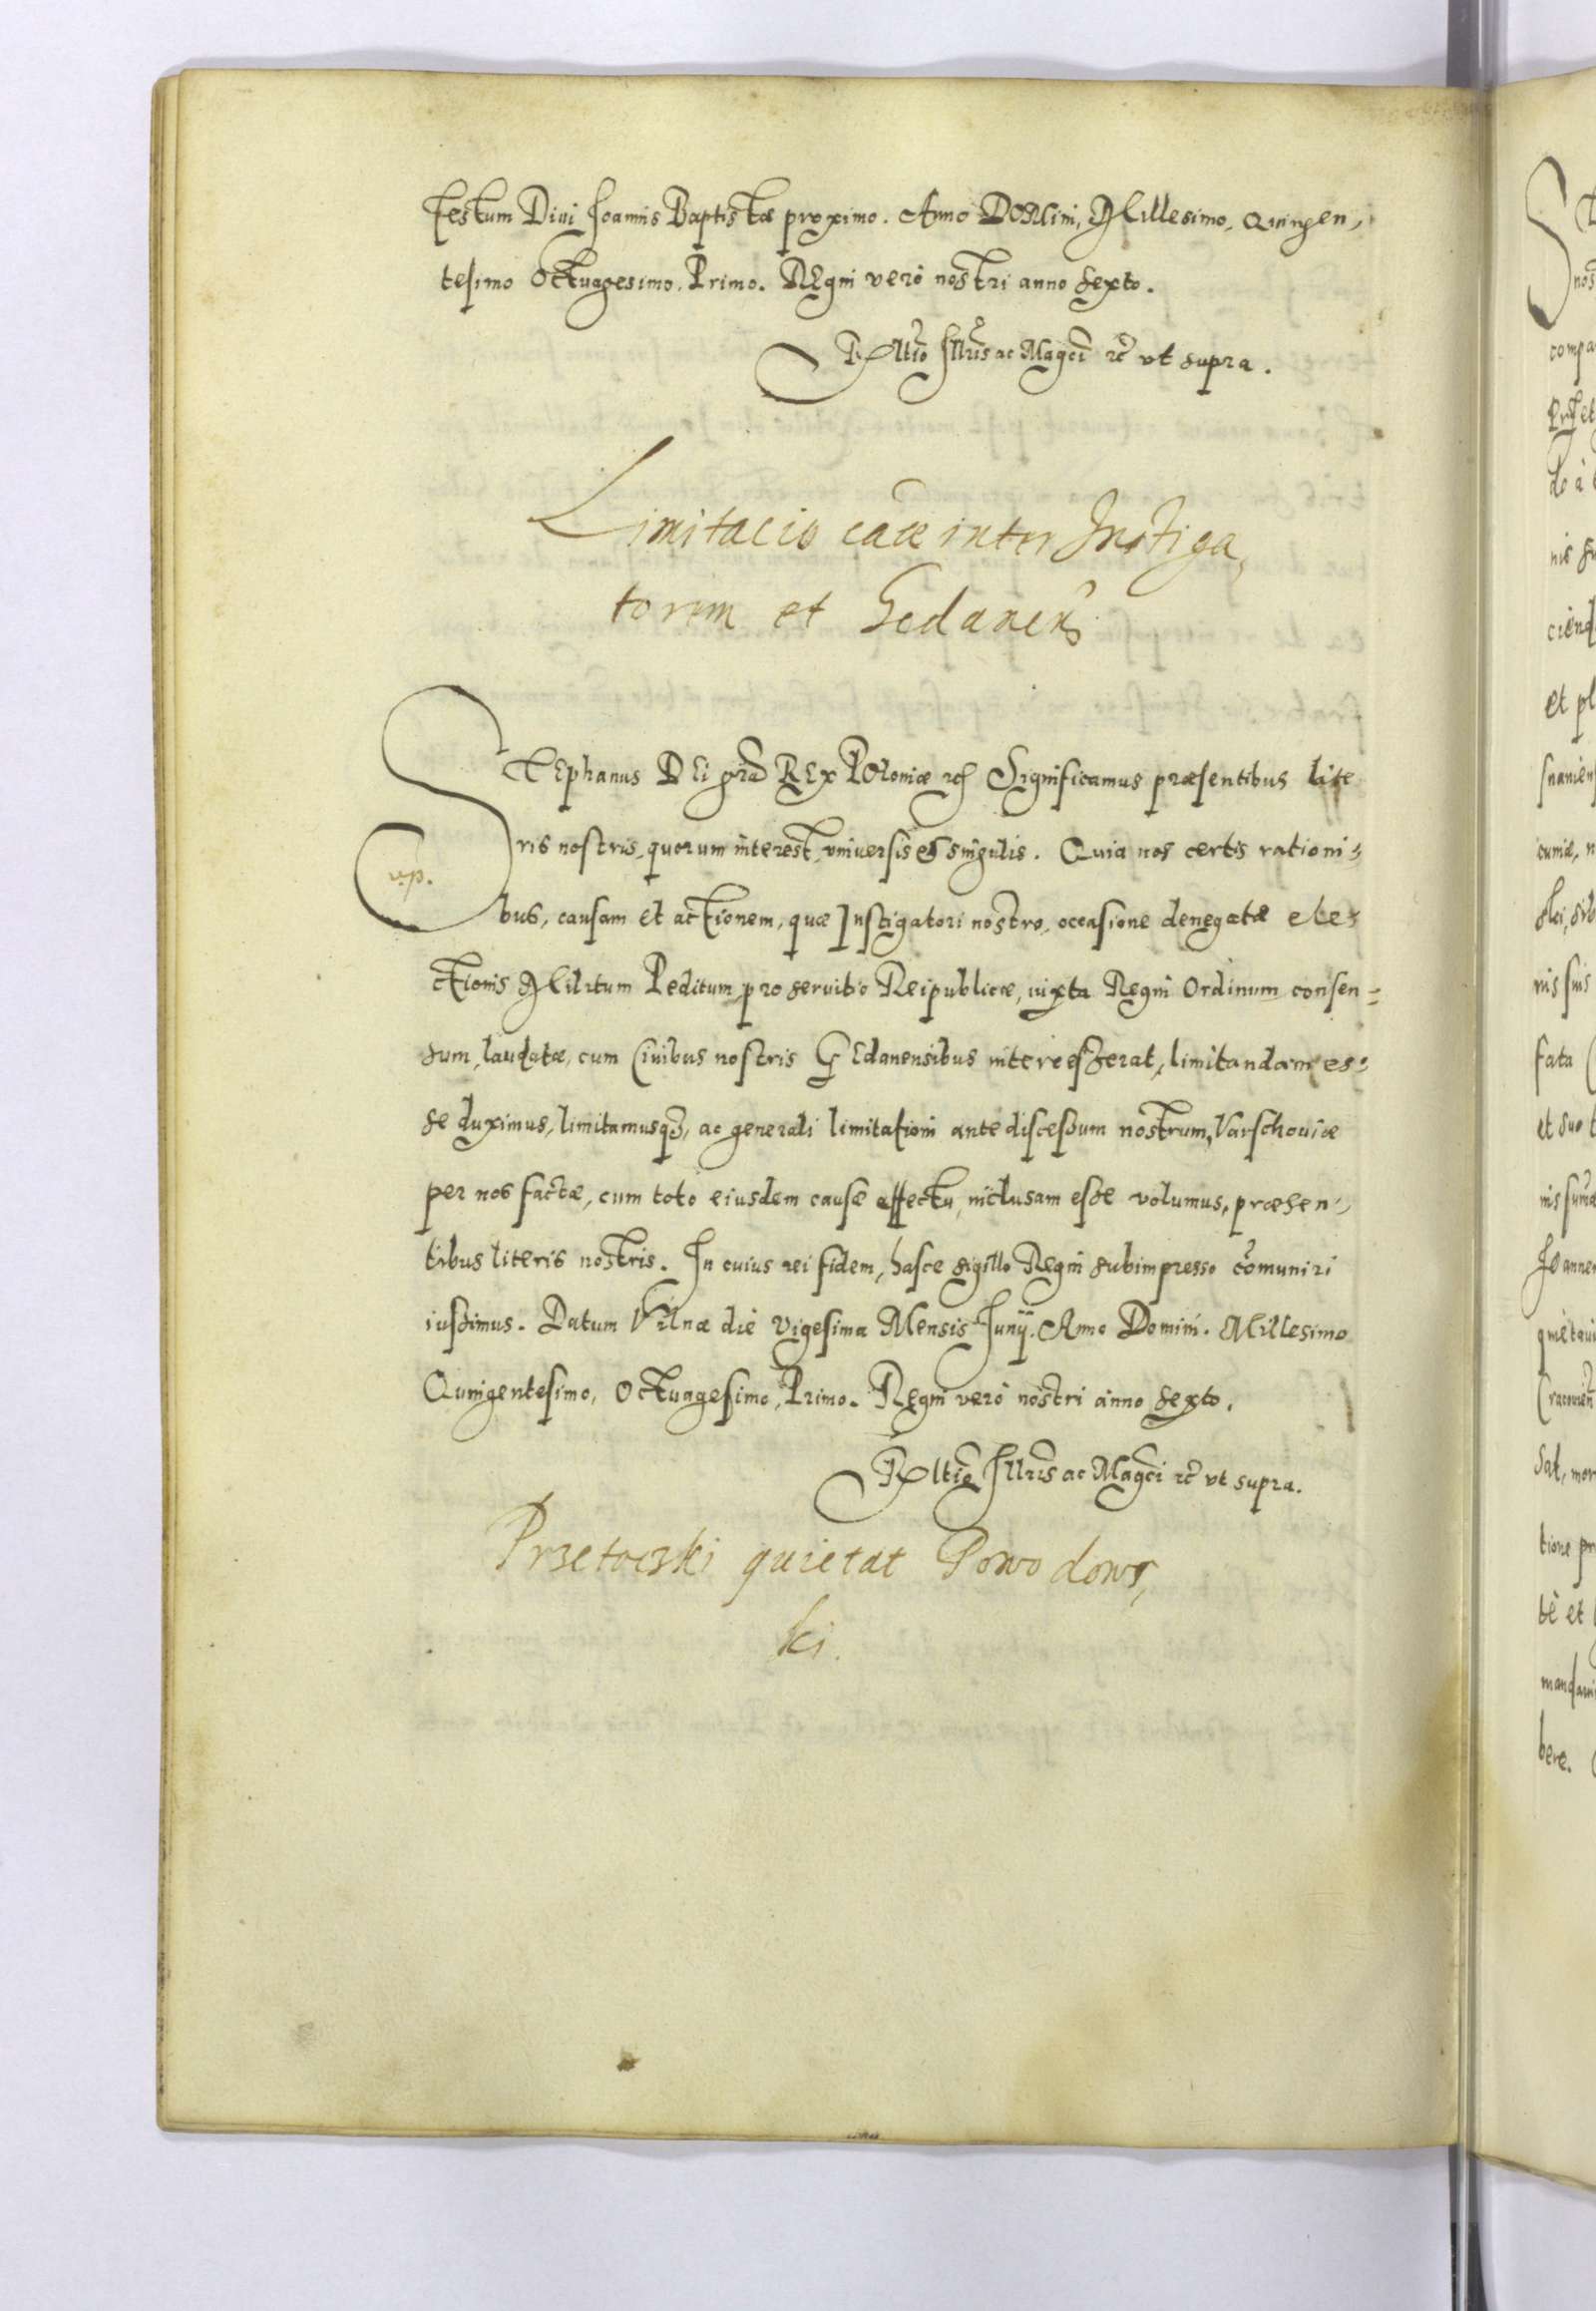 festum Diui Joannis Baptistæ proximo. Anno DOMini, Millesimo, Quingen-
tesimo Octuagesimo, Primo. REgni verò nostri anno sexto.
Rltio Illris ac Magci rc vt supra.
Limitacio cãæ inter Instiga,
torem et Gedanen̄
STEphanus DEi grã REx POloniæ rc Significamus præsentibus lite
ris nostris, quorum interest, vniuersis et singulis. Quia nos certis rationi-
bus, causam et actionem, quæ Instigatori nostro, occasione denegatæ ele-
ctionis Militum Peditum pro seruitio Reipublicæ, iuxta Regni Ordinum consen=
sum, laudatæ, cum Ciuibus nostris GEdanensibus intercesserat, limitandam es-
se duximus, limitamusq3, ac generali limitationi ante discessum nostrum, Varschouiæ
per nos factæ, cum toto eiusdem causæ effectu, inclusam esse volumus, præsen-
tibus literis nostris. In cuius rei fidem, hasce sigillo Regni subimpresso cõmuniri
iussimus. Datum Vilnæ die Vigesima Mensis Junij. Anno Domini. Millesimo
Quingentesimo, Octuagesimo, Primo. Regni verò nostri anno sexto.
Rltio Illris ac Magci rc vt supra.
Przetoczki quietat Powodows,
ki.